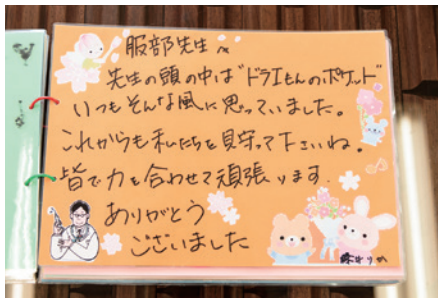 服部先生へ
先生の頭の中は"ドラえもんのポケット"
いつもそんな風に思っていました。
これからも私たちを見守って下さいね。
皆で力を合わせて頑張ります.
ありがとう
ございました